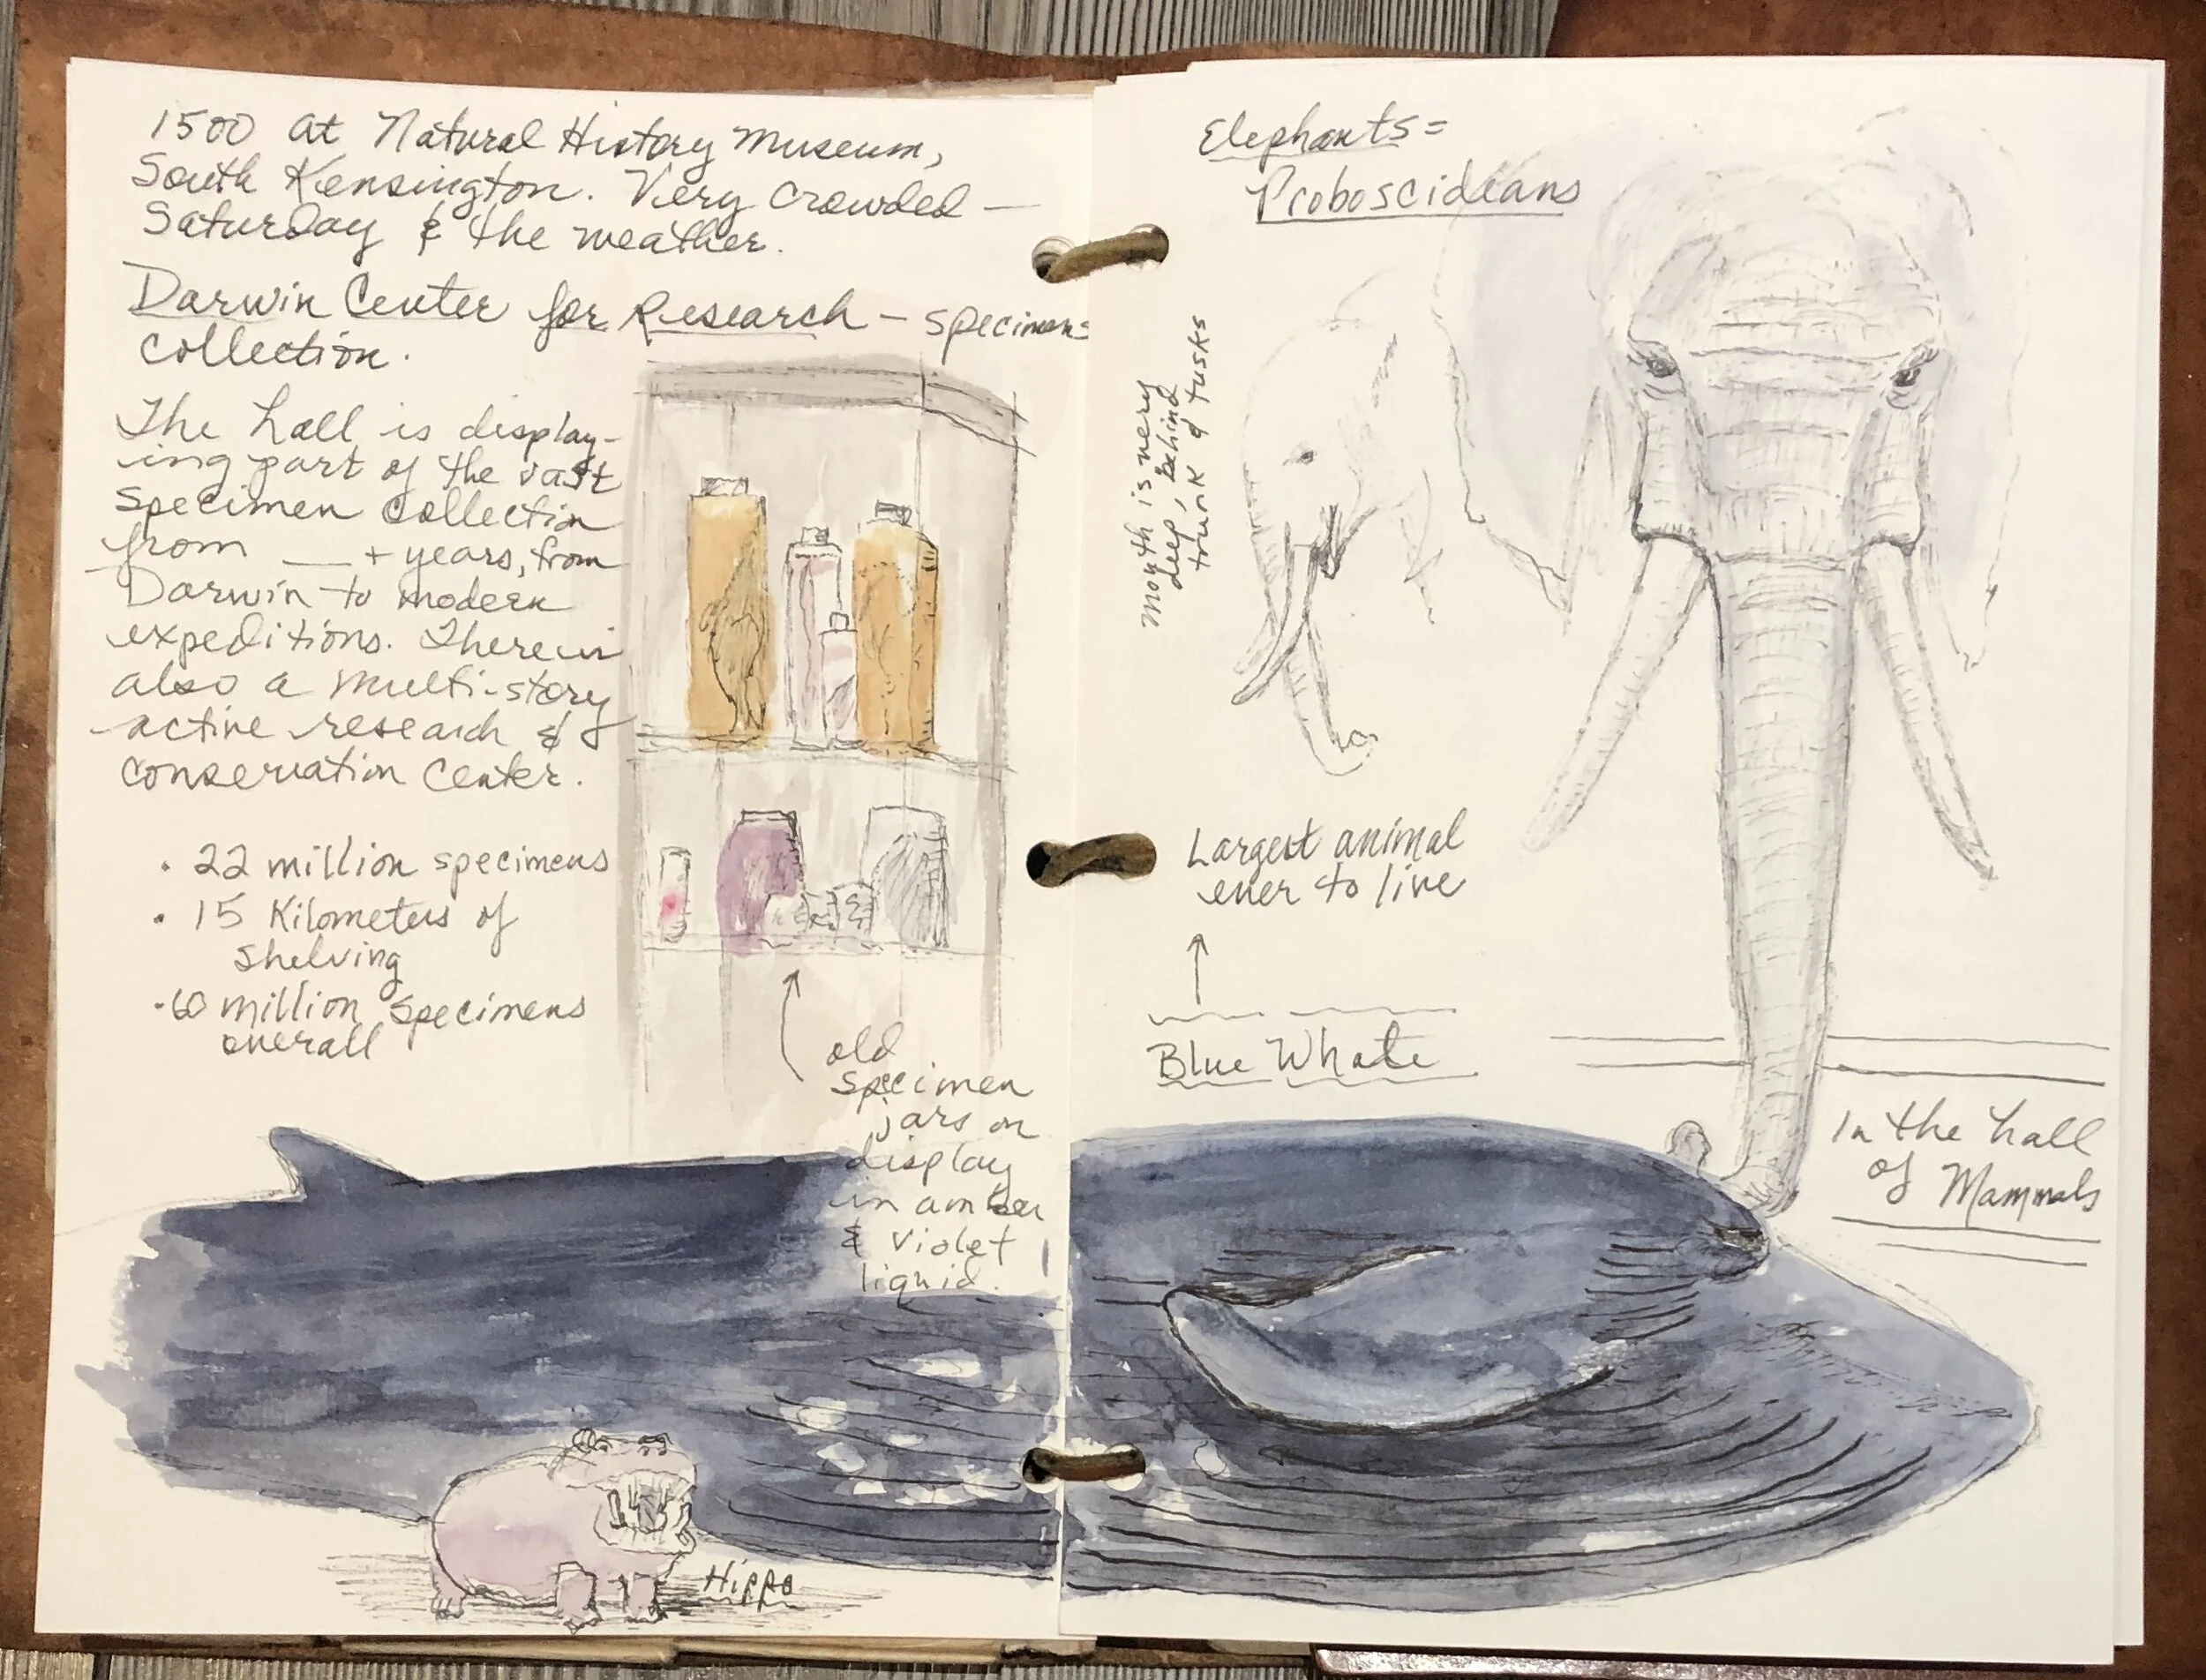 1500 at Natural History Museum,
South Kensington. Very crowded —
Saturday & the weather.
Darwin Center for Research – specimen=
collection.
The hall is display-
ing part of the vast
specimen collection
from ___ + years, from
Darwin to modern
expeditions. There is
also a multi-story
active research &
conservation center.
· 22 million specimens
· 15 Kilometers of
shelving
· 60 million specimens
overall
old
specimen
jars on
display
in amber
& violet
liquid.
Hippo
Elephants =
Proboscideans
mouth is very
deep, behind
trunk & tusks
Largest animal
ever to live
Blue Whale
In the hall
of Mammals